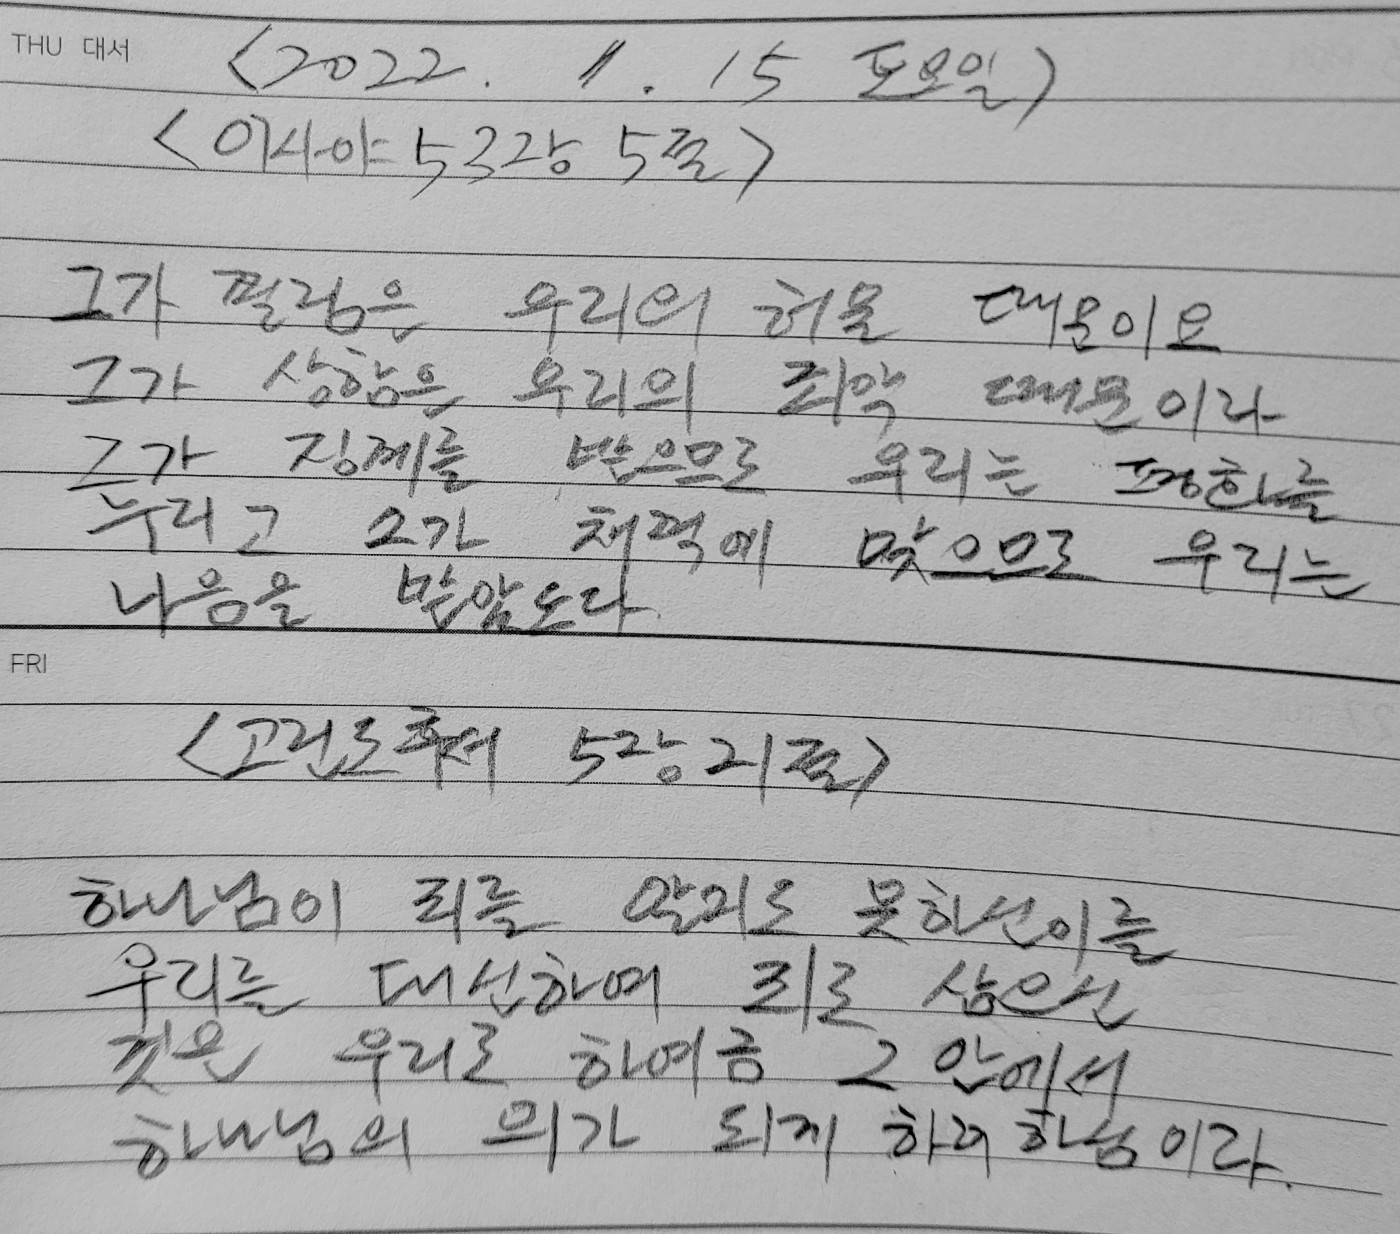 THU 대서
<2022. 1. 15 토요일>
<이사야 53장 5절>
그가 찔림은 우리의 허물 때문이요
그가 상함은 우리의 죄악 때문이라
그가 징계를 받으므로 우리는 평화를
누리고 그가 채찍에 맞으므로 우리는
나음을 받았도다.
FRI
<고린도후서 5장 21절>
하나님이 죄를 알지도 못하신 이를
우리를 대신하여 죄로 삼으신
것은 우리로 하여금 그 안에서
하나님의 의가 되게 하려 하심이라.